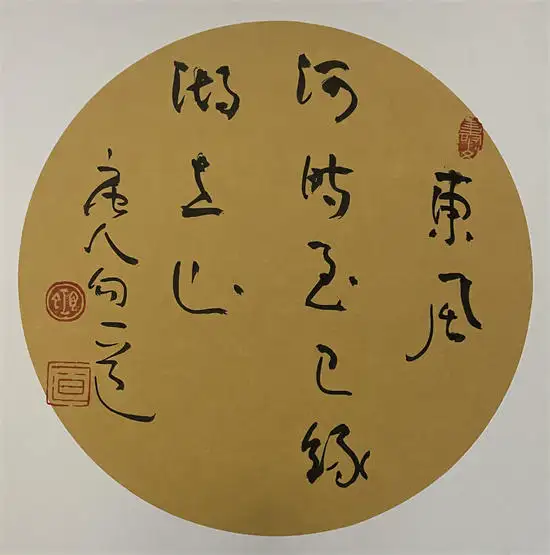 東風
何時至已綠
湖上山
唐人句一道